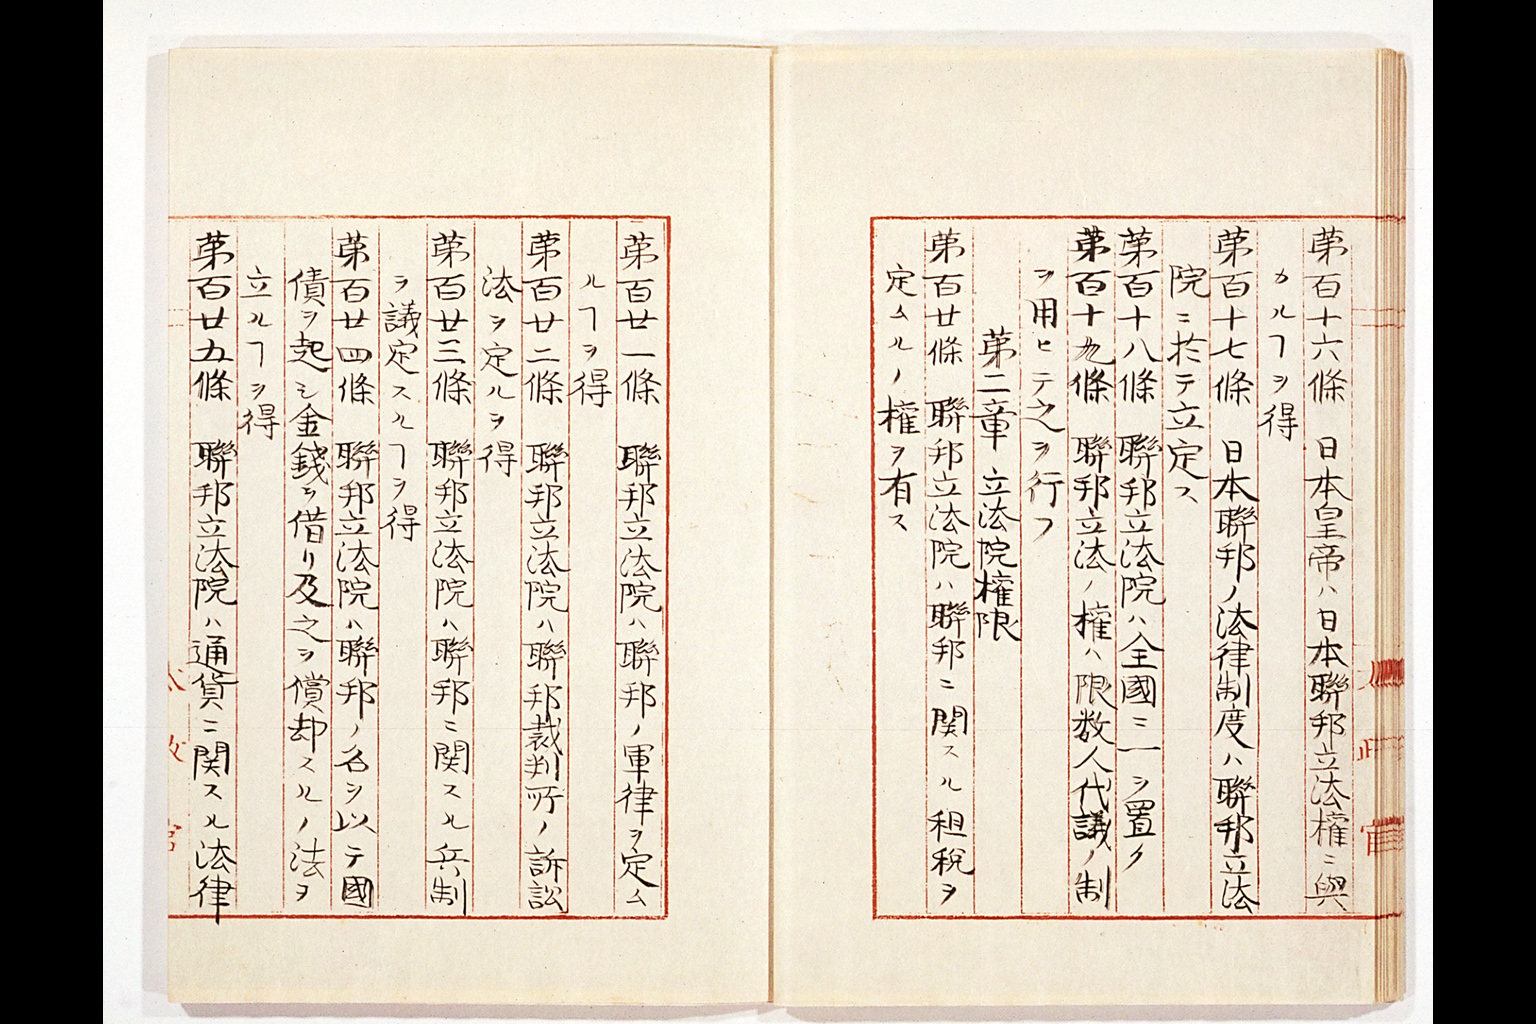 第百十六條　日本皇帝ハ日本聯邦立法權ニ與
カルヿヲ得
第百十七條　日本聯邦ノ法律制度ハ聯邦立法
院ニ於テ立定ス
第百十八條　聯邦立法院ハ全國ニ一ヲ置ク
第百十九條　聯邦立法ノ權ハ限数人代議ノ制
ヲ用ヒテ之ヲ行フ
第二章　立法院權限
第百廿條　聯邦立法院ハ聯邦ニ関スル租税ヲ
定ムルノ權ヲ有ス
第百廿一條　聯邦立法院ハ聯邦ノ軍律ヲ定ム
ルヿヲ得
第百廿二條　聯邦立法院ハ聯邦裁判所ノ訴訟
法ヲ定ルヲ得
第百廿三條　聯邦立法院ハ聯邦ニ関スル兵制
ヲ議定スルヿヲ得
第百廿四條　聯邦立法院ハ聯邦ノ名ヲ以テ國
債ヲ起シ金錢ヲ借リ及之ヲ償却スルノ法ヲ
立ルヿヲ得
第百廿五條　聯邦立法院ハ通貨ニ関スル法律